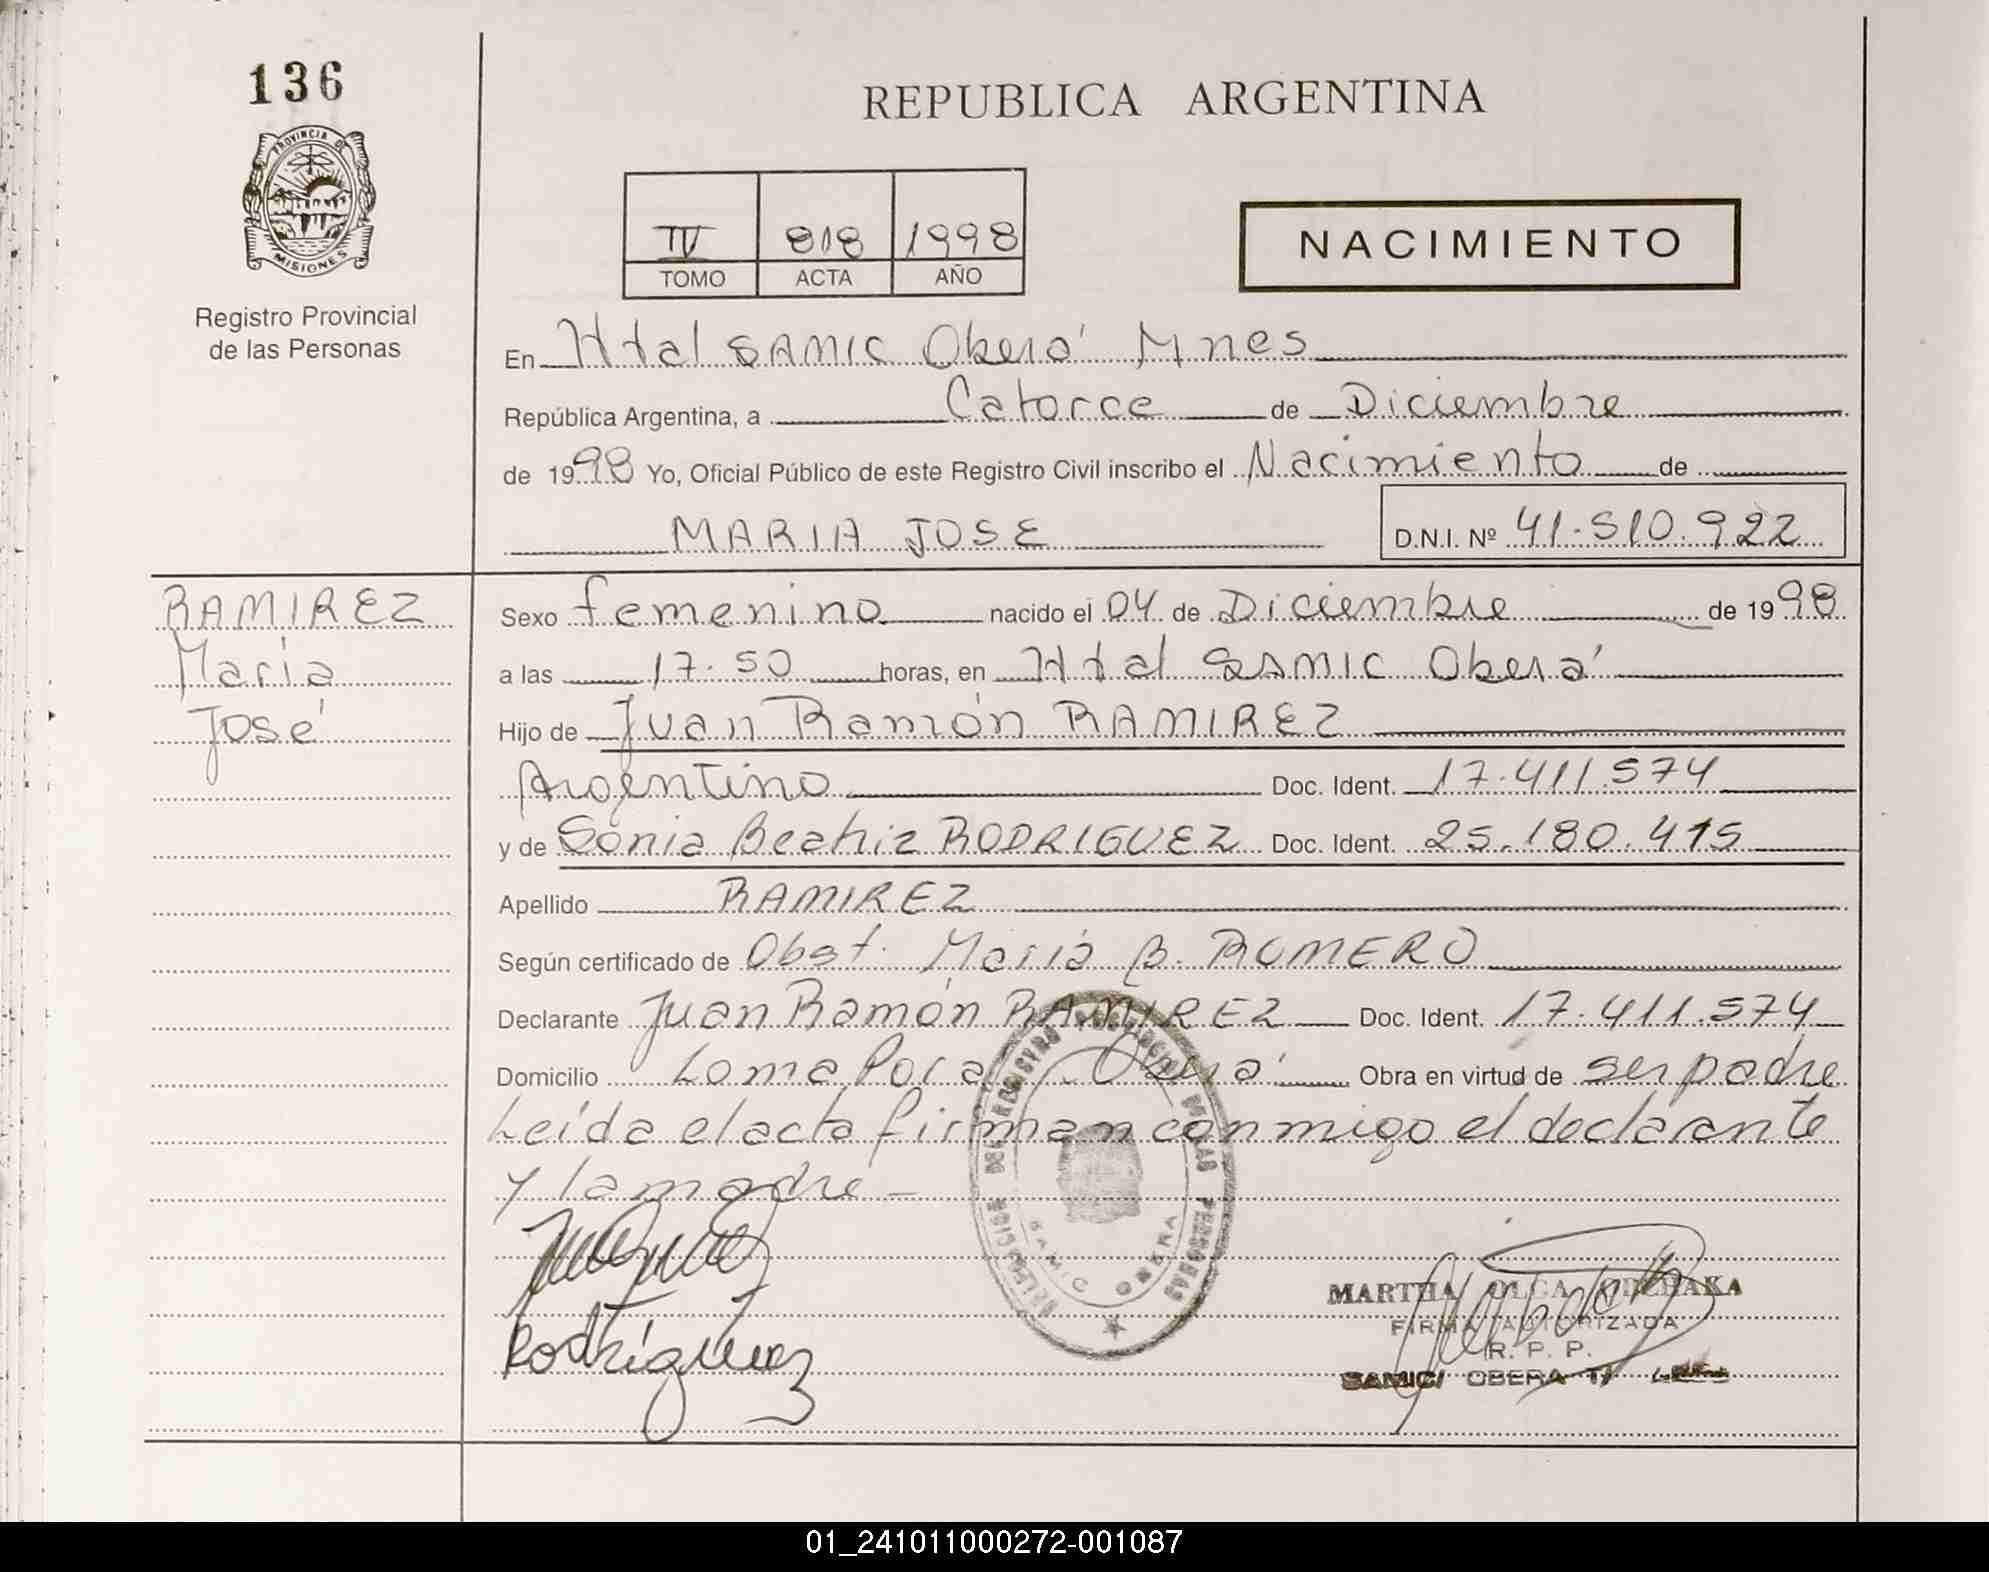 136
PROVINCIA DE
MISIONES
Registro Provincial
de las Personas
REPUBLICA ARGENTINA
IV 818 1998
TOMO ACTA AÑO
NACIMIENTO
En Htal SAMIC Oberá Mnes
República Argentina, a Catorce de Diciembre
de 1998 Yo, Oficial Público de este Registro Civil inscribo el Nacimiento de
MARIA JOSE D.N.I. Nº 41.510.922
RAMIREZ
María
José
Sexo femenino nacido el 04 de Diciembre de 1998
a las 17.50 horas, en Htal SAMIC Oberá
Hijo de Juan Ramón RAMIREZ
Argentino Doc. Ident. 17.411.574
y de Sonia Beatriz RODRIGUEZ Doc. Ident. 25.180.415
Apellido RAMIREZ
Según certificado de Obst. María B. ROMERO
Declarante Juan Ramón RAMIREZ Doc. Ident. 17.411.574
Domicilio Loma Porá Oberá Obra en virtud de ser padre
Leída el acta firman conmigo el declarante
y la madre
Rodríguez
DELEGACION DEL REGISTRO PROVINCIAL DE LAS PERSONAS
SAMIC OBERA
MARTHA OLGA
FIRMA AUTORIZADA
R. P. P.
SAMIC OBERA
01_241011000272-001087